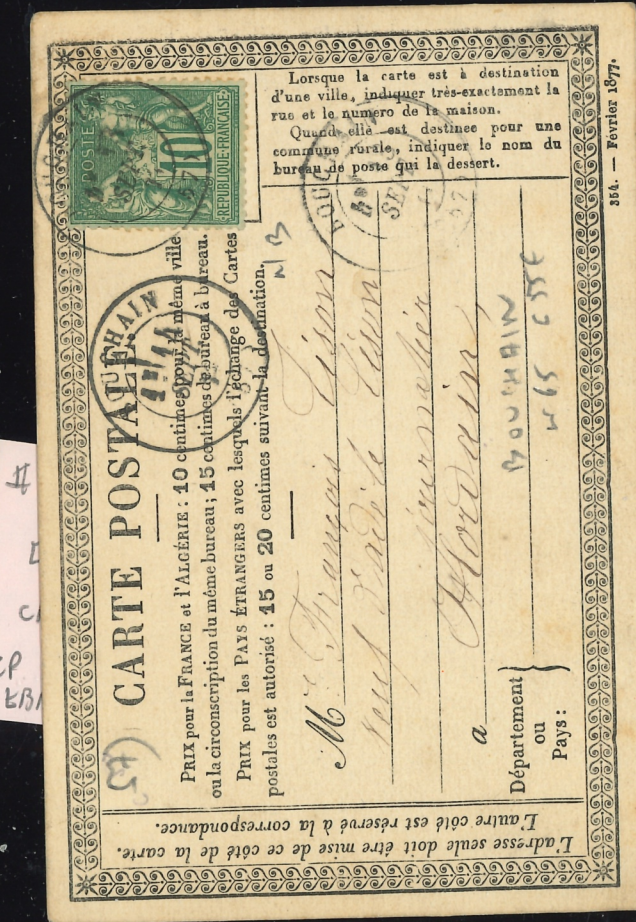 Lorsque la carte est à destination
d'une ville, indiquer très-exactement la
rue et le numero de la maison.
Quand elle est destinee pour une
commune rurale, indiquer le nom du
bureau de poste qui la dessert.
354. — Février 1877.
POSTE
10
REPUBLIQUE-FRANÇAISE
CARTE POSTALE.
BOUCHAIN
SEPT
PRIX pour la FRANCE et l'ALGÉRIE : 10 centimes pour la même ville
ou la circonscription du même bureau ; 15 centimes de bureau à bureau.
PRIX pour les PAYS ÉTRANGERS avec lesquels l'échange des Cartes
postales est autorisé : 15 ou 20 centimes suivant la destination.
N/B
M François
journalier
a Hordain
Département
ou
Pays :
BOUCHAIN
L'adresse seule doit être mise de ce côté de la carte.
L'autre côté est réservé à la correspondance.